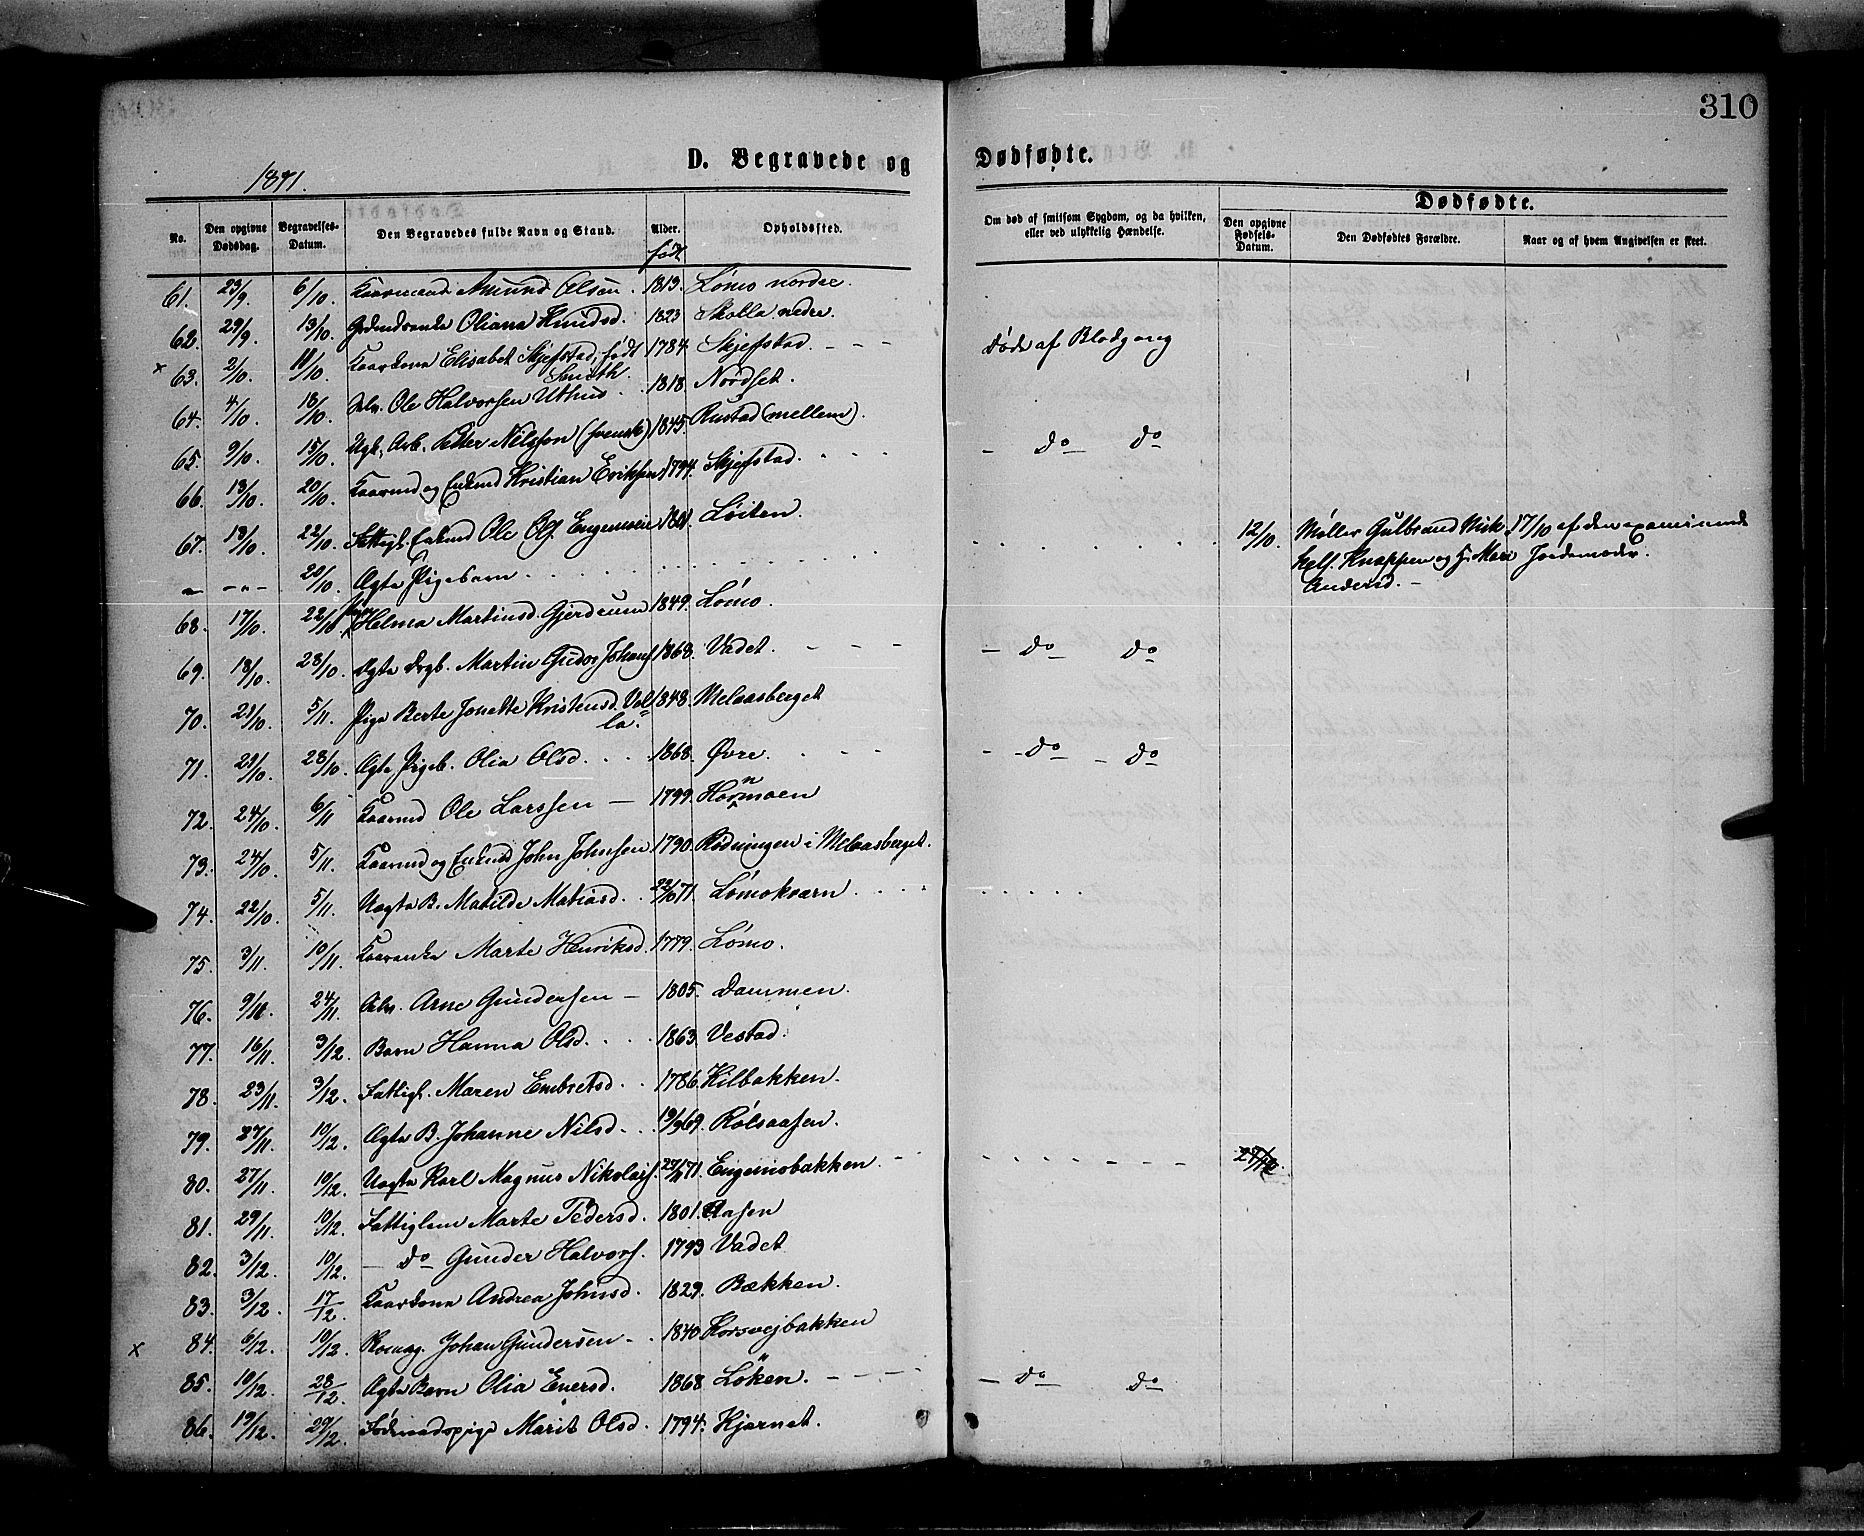 310
D. Begravede og Dødfødte.
1871.
No. | Den opgivne Dødsdag. | Begravelses-Datum. | Den Begravedes fulde Navn og Stand. | Alder. født | Opholdssted. | Om død af smitsom Sygdom, og da hvilken, eller ved ulykkelig Hændelse. | Dødfødte. Den opgivne Fødsels-Datum. | Den Dødfødtes Forældre. | Naar og af hvem Angivelsen er skeet.
61. 29/9. 6/10. Kaarmand Amund Olsen. 1813. Lømo nordre.
62. 29/9. 13/10. Oliana Knudsd. 1823 Skolla nedre.
x 63. 2/10. 11/10. Kaarkona Elisabet Skjefstad, født Smith. 1784. Skjefstad. - - - Døde af Blodgang
64. 4/10. 18/10. Selv. Ole Halvorsen Uthus. 1818. Nordset.
65. 9/10. 15/10. Ugt. Arb. Petter Nilsson (svensk) 1845. Rustad (mellem). - do do
66. 13/10. 20/10. Kaarmd og Enkmd Kristian Eriksen 1794. Skjefstad. . . .
67. 13/10. 22/10. Fattigl. Enkmd Ole Ols. Engemoen 1801. Løiten.
- - - - 20/10. Ægte Pigebarn . . . . 12/10. Møller Gulbrand Mik kels. Knappen og H. Mari Andersd. - 17/10 af den examinerede Jordemoder.
68. 17/10. 22/10 Pige Helma Martinsd. Gjerdrum 1849. Lømo.
69. 18/10. 28/10. Ægte Drgb. Martin Gudor Johans. 1868. Vadet. - - - - do do
70. 21/10. 5/11. Pige Berte Jonette Kristensd. Volla. 1848. Melaasberget
71. 21/10. 28/10. Ægte Pigeb. Olia Olsd. . . . 1868. Øvre. - - - - do - do
72. 24/10. 6/11 Kaarmd Ole Larssen - 1799. Hornmoen
73. 24/10. 5/11. Kaarmd og Enkmd John Johnsen 1790. Rødningen i Melaasberget.
74. 22/10. 5/11. Uægte B. Matilde Matiasd. . . 22/10 71. Lømokværn . . . .
75. 3/11. 10/11. Kaarenke Marte Henriksd. 1779. Lømo.
76. 9/11. 24/11. Selv. Arne Gundersen - 1805. Dammen.
77. 16/11. 3/12. Barn Hanna Olsd. . . . 1863. Vestad.
78. 23/11. 3/12. Fattigl. Maren Embretsd. . . 1786. Kilbakken.
79. 27/11. 10/12. Ægte B. Johanne Nilsd. . . 19/9 69. Rølsaasen.
80. 27/11. 10/12. Uægte Karl Magnus Nikolajs. 27/11 71. Engemobakken. - - . . . - - - 27/12
81. 29/11. 10/12. Fattiglem Marte Pedersd. 1801. Aasen
82. 3/12. 10/12. - do Gunder Halvors. 1793 Vadet
83. 3/12. 17/12. Kaarkona Andrea Johnsd. 1829. Bækken.
x 84. 6/12. 10/12. Johan Gundersen - . 1840. Korsvejbakken
85. 10/12. 28/12. Ægte Barn Olia Enersd. 1868 Løken. - - - - - do do
86. 19/12. 29/12. Marit Olsd. 1794. Kjernet.